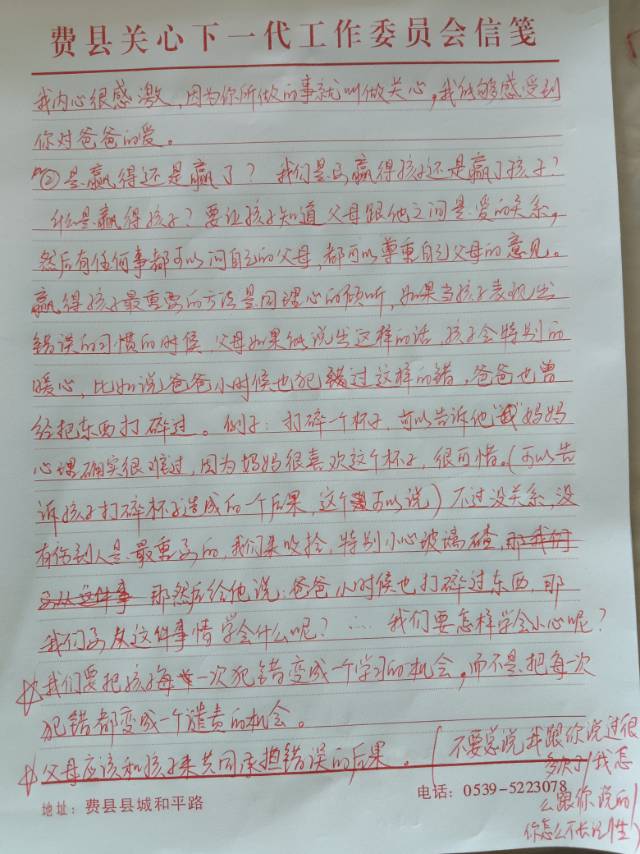 费县关心下一代工作委员会信笺
我内心很感激，因为你所做的事就叫做关心，我能够感受到
你对爸爸的爱。
②是赢得还是赢了？我们是要赢得孩子还是赢了孩子？
什么是赢得孩子？要让孩子知道父母跟他之间是爱的关系，
然后有任何事都可以问自己的父母，都可以尊重自己父母的意见。
赢得孩子最重要的方法是同理心的倾听，如果当孩子表现出
错误的习惯的时候，父母如果能说出这样的话，孩子会特别的
暖心，比如说，爸爸小时候也犯过这样的错，爸爸也曾
经把东西打碎过。例子：打碎一个杯子，可以告诉他“我”妈妈
心理确实很难过，因为妈妈很喜欢这个杯子，很可惜。（可以告
诉孩子打碎杯子造成的一个后果，这个可以说）不过没关系，没
有伤到人是最重要的，我们来收拾，特别小心玻璃碴，那我们
要从这件事 那然后给他说：爸爸小时候也打碎过东西，那
我们要从这件事情学会什么呢？∴ 我们要怎样学会小心呢？
我们要把孩子每一次犯错变成一个学习的机会，而不是把每一次
犯错都变成一个谴责的机会。
父母应该和孩子来共同承担错误的后果。
（不要总说我跟你说过很
多次了/我怎
么跟你说的/
你怎么不长记性）
地址：费县县城和平路
电话：0539-5223078